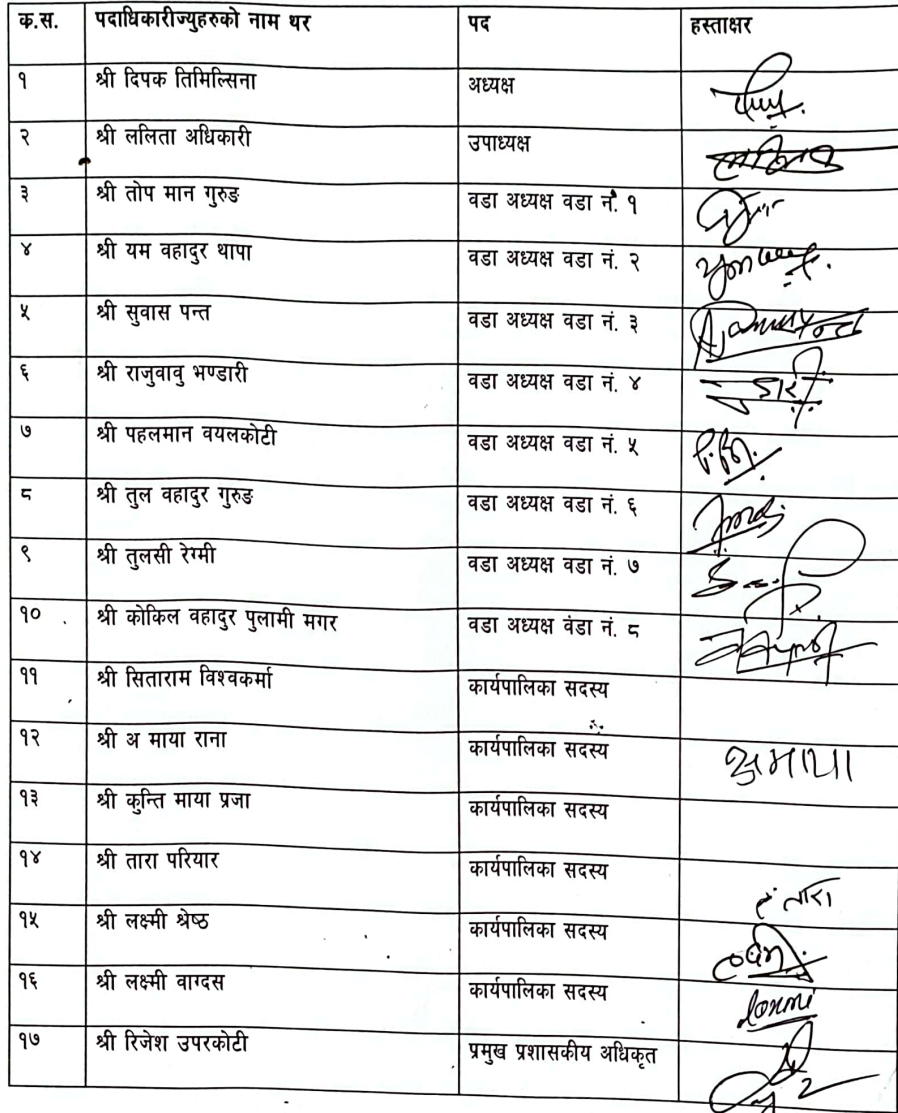 क.स. पदाधिकारीज्युहरुको नाम थर पद हस्ताक्षर
१ श्री दिपक तिमिल्सिना अध्यक्ष
२ श्री ललिता अधिकारी उपाध्यक्ष
३ श्री तोप मान गुरुङ वडा अध्यक्ष वडा नं. १
४ श्री यम वहादुर थापा वडा अध्यक्ष वडा नं. २
५ श्री सुवास पन्त वडा अध्यक्ष वडा नं. ३
६ श्री राजुवावु भण्डारी वडा अध्यक्ष वडा नं. ४
७ श्री पहलमान वयलकोटी वडा अध्यक्ष वडा नं. ५
८ श्री तुल वहादुर गुरुङ वडा अध्यक्ष वडा नं. ६
९ श्री तुलसी रेग्मी वडा अध्यक्ष वडा नं. ७
१० श्री कोकिल वहादुर पुलामी मगर वडा अध्यक्ष वंडा नं. ८
११ श्री सिताराम विश्वकर्मा कार्यपालिका सदस्य
१२ श्री अ माया राना कार्यपालिका सदस्य
१३ श्री कुन्ति माया प्रजा कार्यपालिका सदस्य
१४ श्री तारा परियार कार्यपालिका सदस्य तारा
१५ श्री लक्ष्मी श्रेष्ठ कार्यपालिका सदस्य
१६ श्री लक्ष्मी वाग्दस कार्यपालिका सदस्य Laxmi
१७ श्री रिजेश उपरकोटी प्रमुख प्रशासकीय अधिकृत